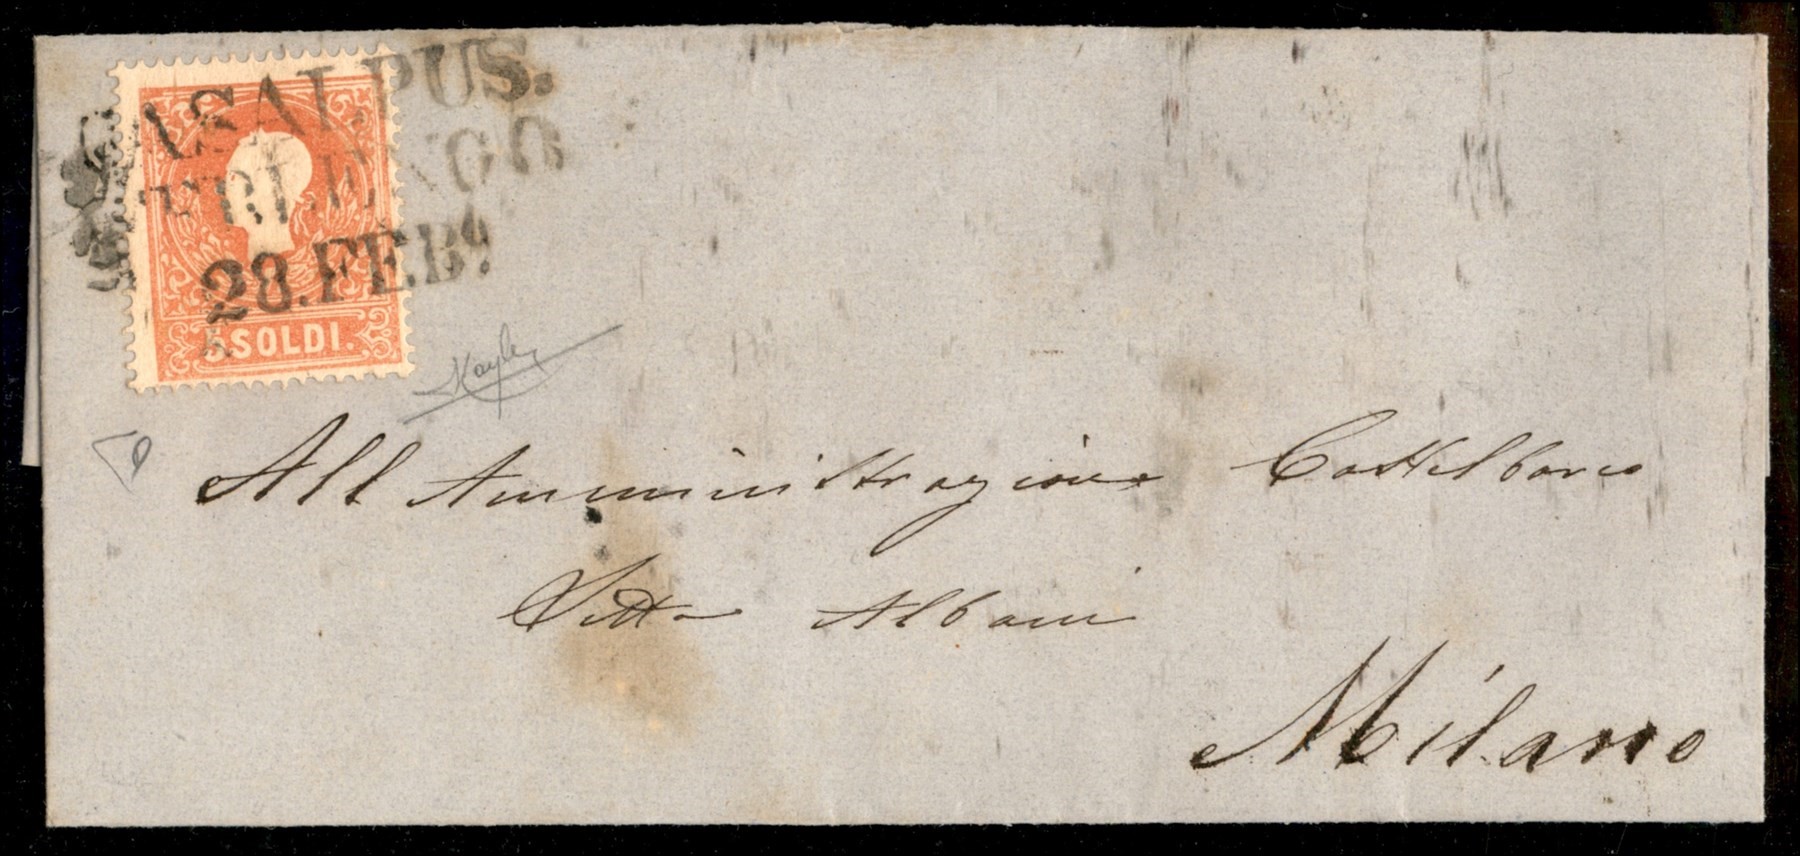 CASALPUS.
TERLENGO
28.FEB.
5 SOLDI.
All Amministrazione Castelbarco
Ditta Albani
Milano